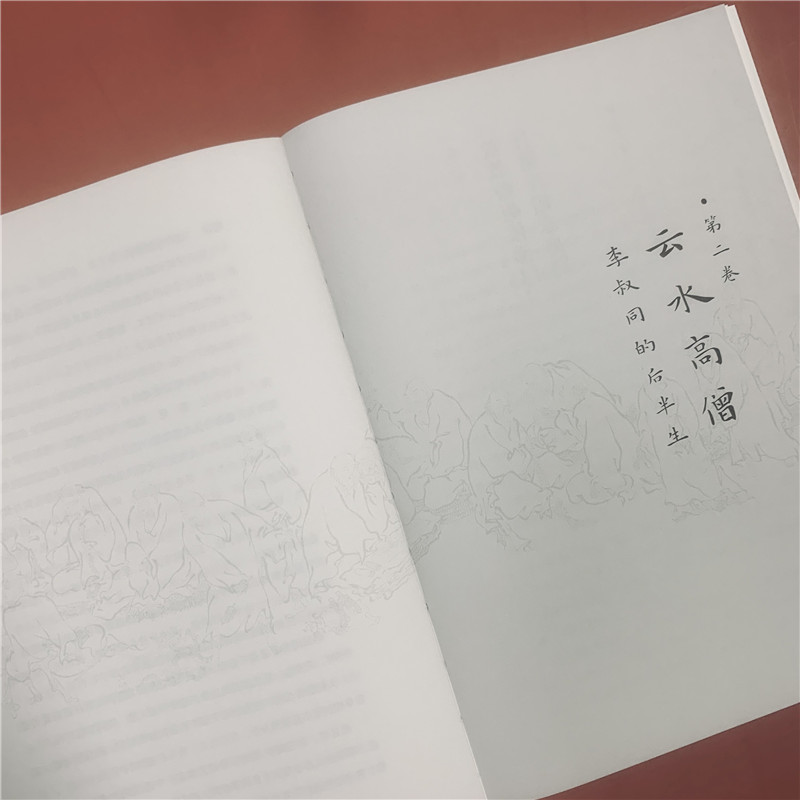 第二卷
云水高僧
李叔同的后半生